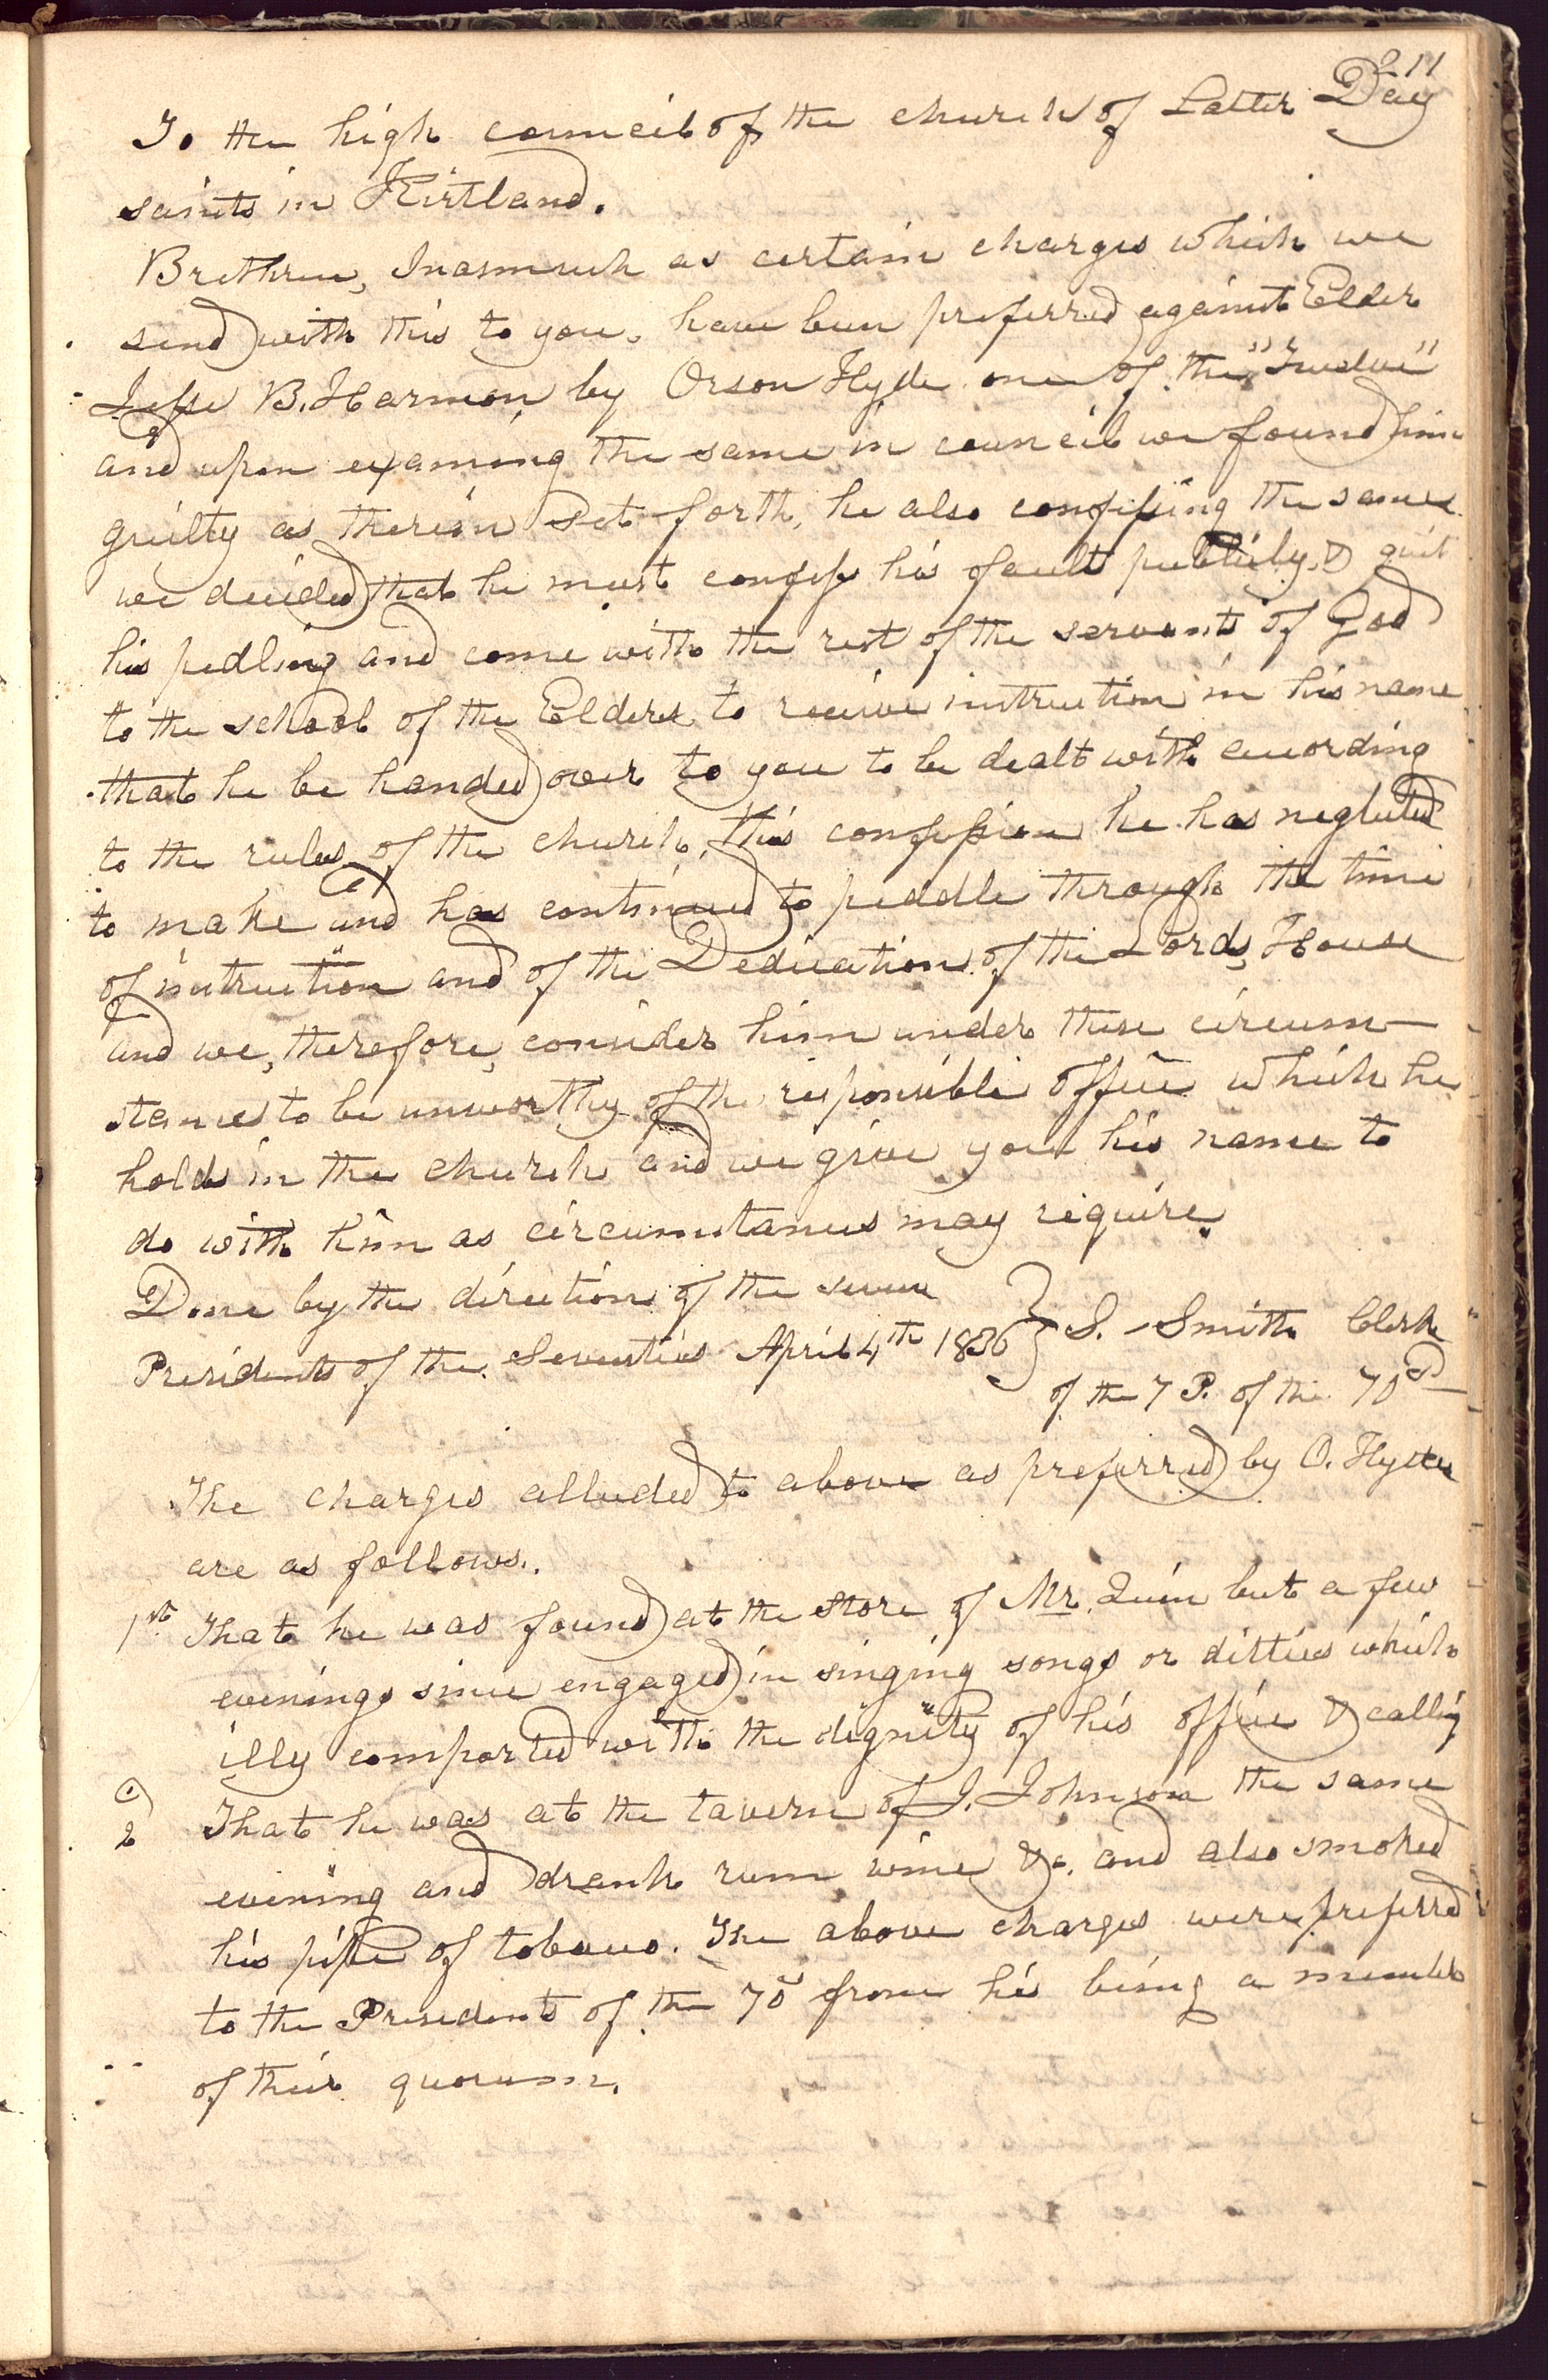 211
To the high council of the church of Latter Day
saints in Kirtland.
Brethren, Inasmuch as certain charges which we
send with this to you, have been preferred against Elder
Jesse B. Harmon by Orson Hyde one of the "Twelve"
and upon examing the same in council we found him
guilty as therein set forth, he also confessing the same
we decided that he must confess his fault publicly, & quit
his pedling and come with the rest of the servants of God
to the school of the Elders to receive instruction in his name
that he be handed over to you to be dealt with according
to the rules of the church, this confession he has neglected
to make and has continued to peddle through the time
of instruction and of the Dedication of the Lords, House
and we, therefore, consider him under these circum-
stances to be unworthy of the responsible office which he
holds in the church and we give you his name to
do with him as circumstances may require.
Done by the direction of the seven
Presidents of the Seventies April 4th 1836 } S. Smith Clerk
of the 7 P. of the 70
The charges alluded to above as preferred by O. Hyde
are as follows.
1st That he was found at the store of Mr. Quin but a few
evenings since engaged in singing songs or ditties which
illy comported with the dignity of his office & calling
2 That he was at the tavern of J. Johnson the same
evening and drank rum wine &c. and also smoked
his pipe of tobacco. The above charges were preferred
to the Presidents of the 70 from his being a member
of their quorum.